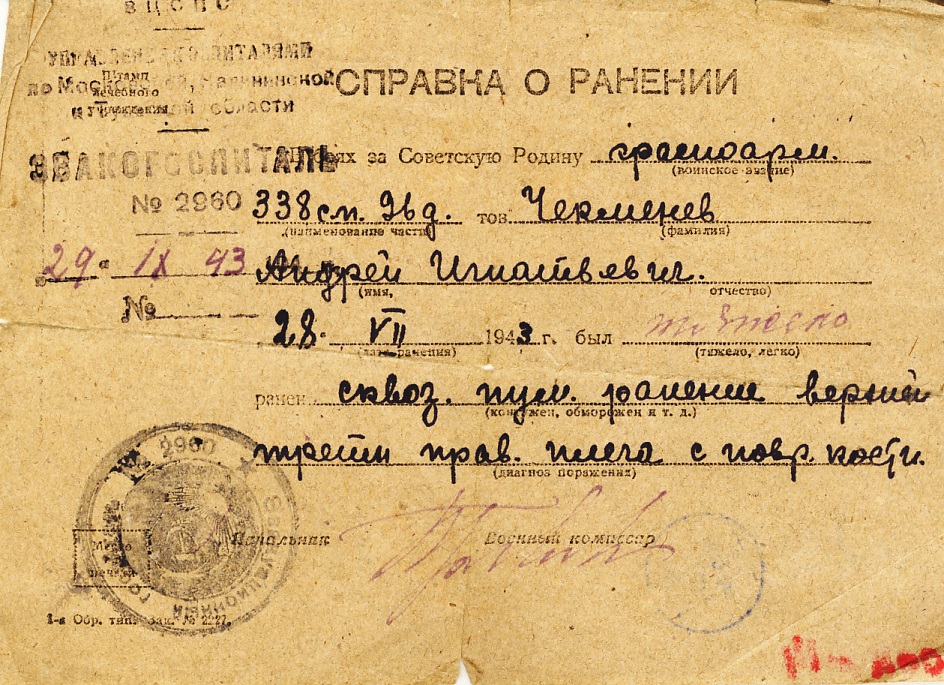 ВЦСПС
УПРАВЛЕНИЕ ГОСПИТАЛЯМИ
по Московской, Калининской
области
Штамп
лечебного
учреждения
ЭВАКОГОСПИТАЛЬ
№ 2960
29 " IX 43
№
СПРАВКА О РАНЕНИИ
В боях за Советскую Родину красноарм.
(воинское звание)
338 сп. 96д. тов. Чекменев
(наименование части) (фамилия)
Андрей Игнатьевич.
(имя, отчество)
28. VII 1943 г. был тяжело
(дата ранения) (тяжело, легко)
ранен сквоз. пул. ранение верхней
(контужен, обморожен и т. д.)
трети прав. плеча с повр. кости.
(диагноз поражения)
Начальник Военный комиссар
2960
Место
печати
1-я Обр. тип. Зак. № 2227.